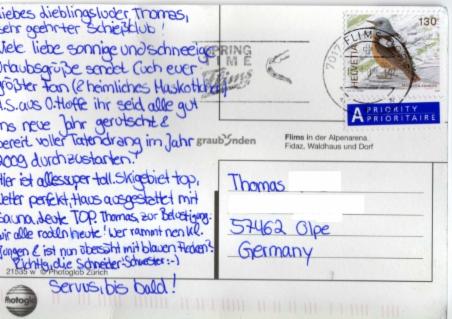 liebes dieblingsluder Thomas,
sehr geehrter Schießclub!
Viele liebe sonnige und schneeige
Urlaubsgrüße sendet Euch euer
größter Fan (& heimliches Maskottchen)
A.S. aus O. Hoffe ihr seid alle gut
ins neue Jahr gerutscht &
bereit voller Tatendrang im Jahr
2009 durchzustarten!
Hier ist alles super toll. Skigebiet top,
Wetter perfekt, Haus ausgestattet mit
Sauna, Leute TOP. Thomas, zur Belustigung:
wir alle rodeln heute! Wer rammt nen kl.
Jungen & ist nun übersäht mit blauen Flecken?
Richtig, die Schneider-Schwester :-)
Servus, bis bald!
21535 w © Photoglob Zürich
Photoglob
SPRING
TIME
Flims
graubünden
Flims in der Alpenarena.
Fidaz, Waldhaus und Dorf
7017 FLIMS
HELVETIA
130
A PRIORITY
PRIORITAIRE
Thomas
57462 Olpe
Germany